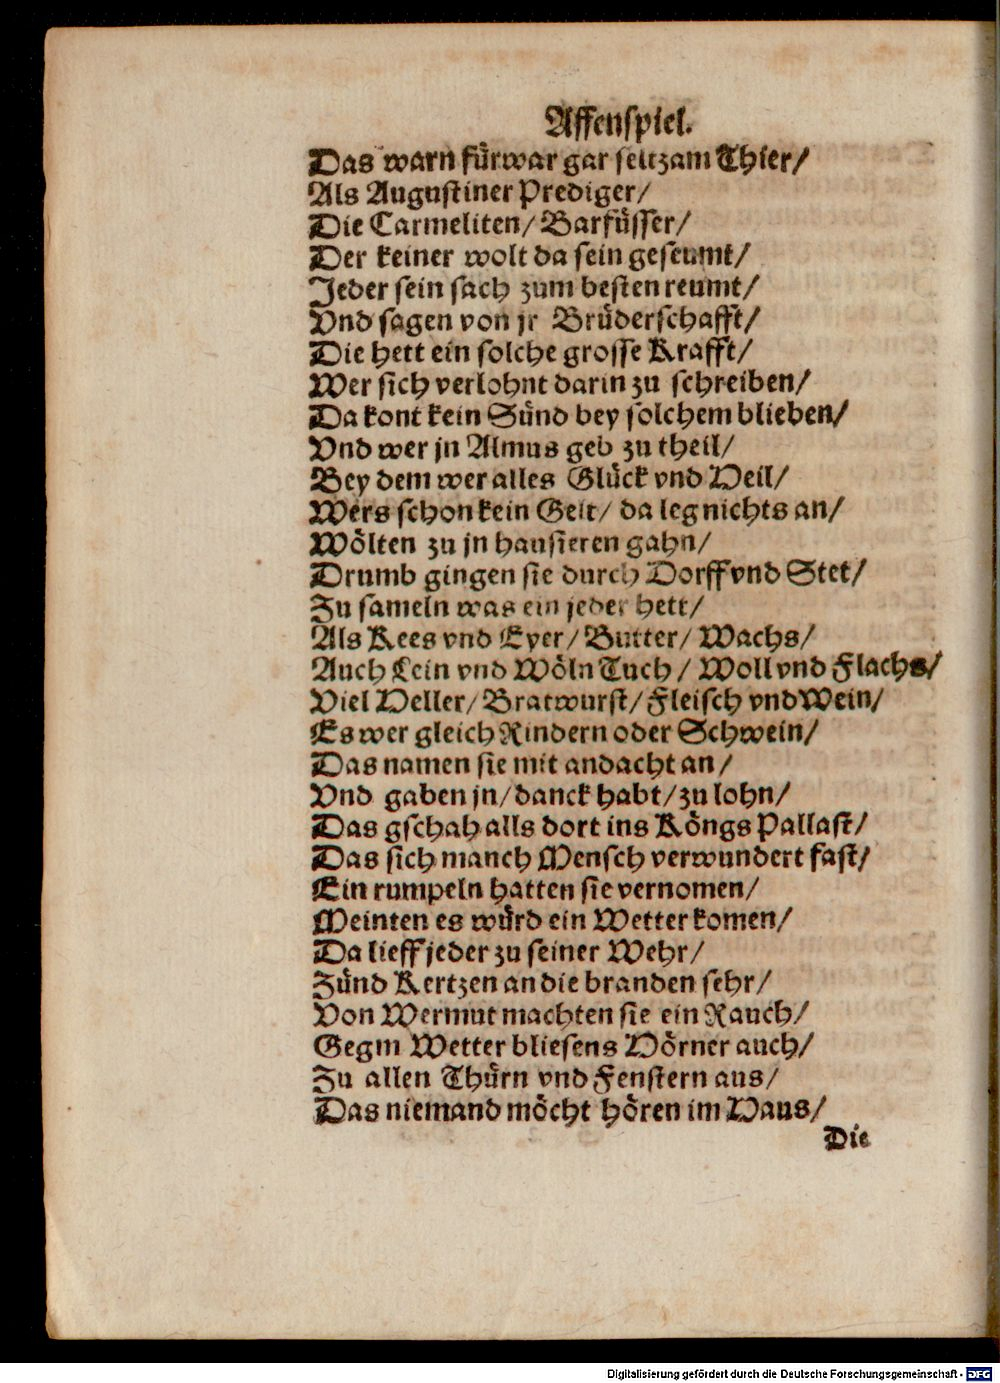 Affenspiel.
Das warn fürwar gar seltzam Thier/
Als Augustiner Prediger/
Die Carmeliten/ Barfüsser/
Der keiner wolt da sein geseumt/
Jeder sein sach zum besten reumt/
Vnd sagen von jr Brüderschafft/
Die hett ein solche grosse Krafft/
Wer sich verlohnt darin zu schreiben/
Da kont kein Sünd bey solchem blieben/
Vnd wer jn Almus geb zu theil/
Bey dem wer alles Glück vnd Heil/
Wers schon kein Gelt/ da leg nichts an/
Wölten zu jn hausieren gahn/
Drumb gingen sie durch Dorff vnd Stet/
Zu sameln was ein jeder hett/
Als Kees vnd Eyer/ Butter/ Wachs/
Auch Lein vnd Wöln Tuch/ Woll vnd Flachs/
Viel Heller/ Bratwurst/ Fleisch vnd Wein/
Es wer gleich Rindern oder Schwein/
Das namen sie mit andacht an/
Vnd gaben jn/ danck habt/ zu lohn/
Das gschah alls dort ins Köngs Pallast/
Das sich manch Mensch verwundert fast/
Ein rumpeln hatten sie vernomen/
Meinten es würd ein Wetter komen/
Da lieff jeder zu seiner Wehr/
Zünd Kertzen an die branden sehr/
Von Wermut machten sie ein Rauch/
Gegm Wetter bliesens Hörner auch/
Zu allen Thürn vnd Fenstern aus/
Das niemand möcht hören im Haus/
Die
Digitalisierung gefördert durch die Deutsche Forschungsgemeinschaft - DFG